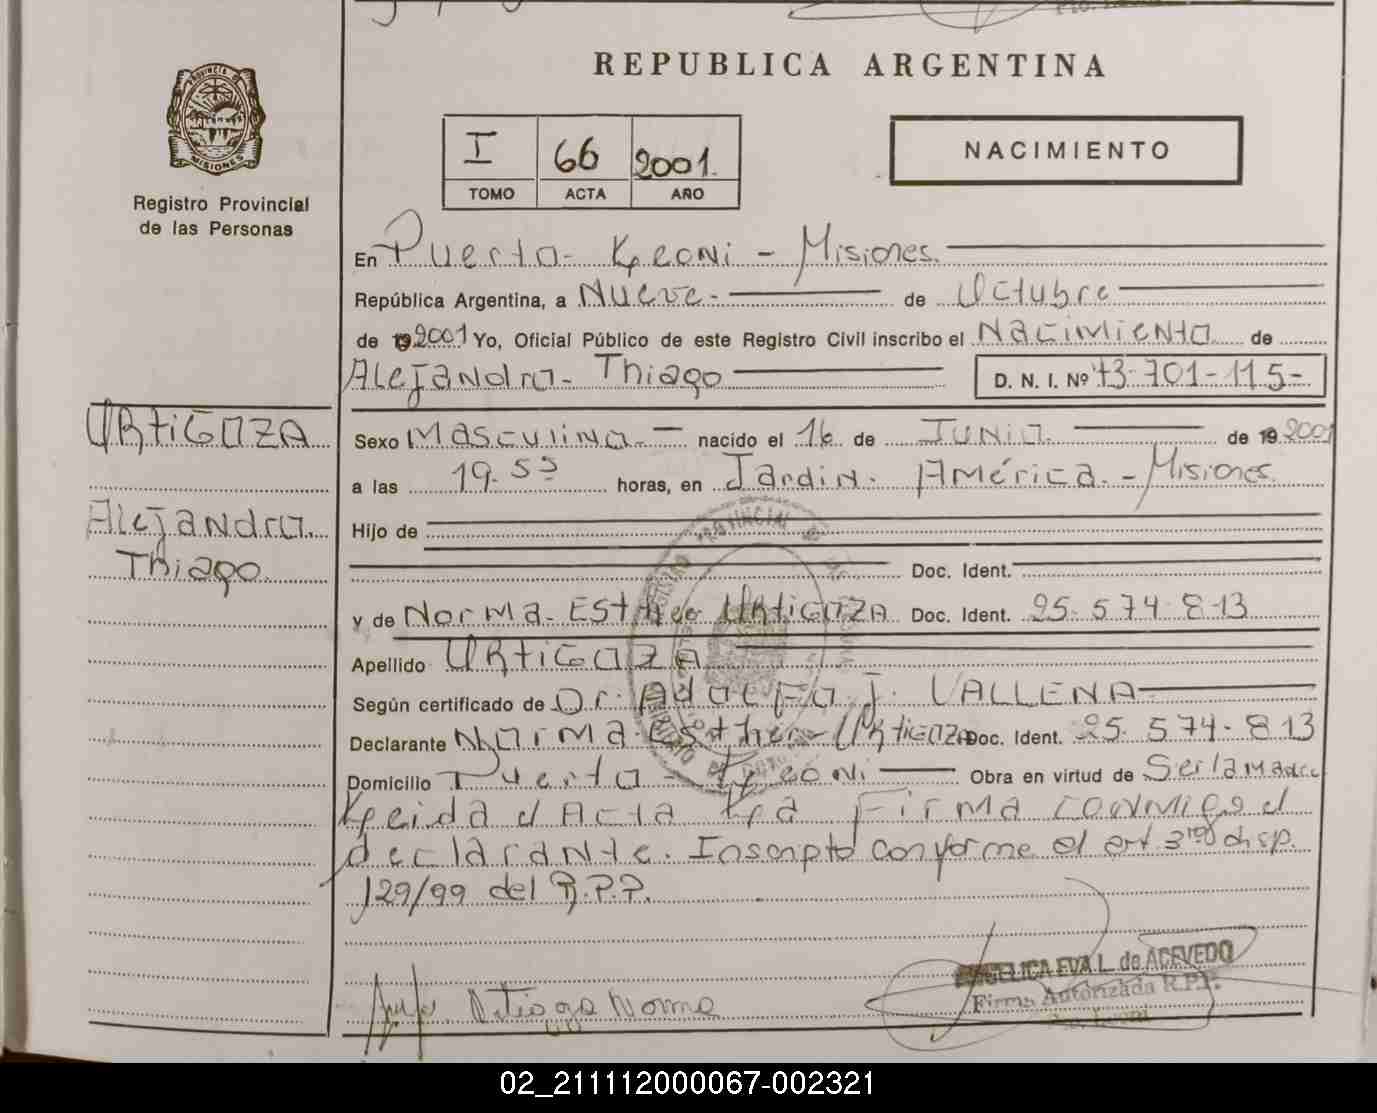 REPUBLICA ARGENTINA
PROVINCIA DE MISIONES
Registro Provincial
de las Personas
I 66 2001.
TOMO ACTA AÑO
NACIMIENTO
En Puerto - Leoni - Misiones.
República Argentina, a Nueve - de Octubre
de 19 2001 Yo, Oficial Público de este Registro Civil inscribo el Nacimiento de
Alejandro - Thiago D. N. I. Nº 43-701-115-
ORTIGOZA
Alejandro.
Thiago
Sexo Masculino. - nacido el 16 de Junio. de 19 2001
a las 19.55 horas, en Jardin. América. - Misiones.
Hijo de
Doc. Ident.
y de Norma - Esther ORTIGOZA Doc. Ident. 25-574-813
Apellido ORTIGOZA
Según certificado de Dr: Adolfo J. VALLENA
Declarante Norma Esther - ORTIGOZA Doc. Ident. 25-574-813
Domicilio Puerto - Leoni - Obra en virtud de Ser la Madre
Leida el Acta La Firma conmigo el
declarante. Inscripto conforme el art. 3ro disp.
129/99 del R.P.P.
Norma
ANGELICA EVA L. de ACEVEDO
Firma Autorizada R.P.P.
Pto. Leoni
02_211112000067-002321